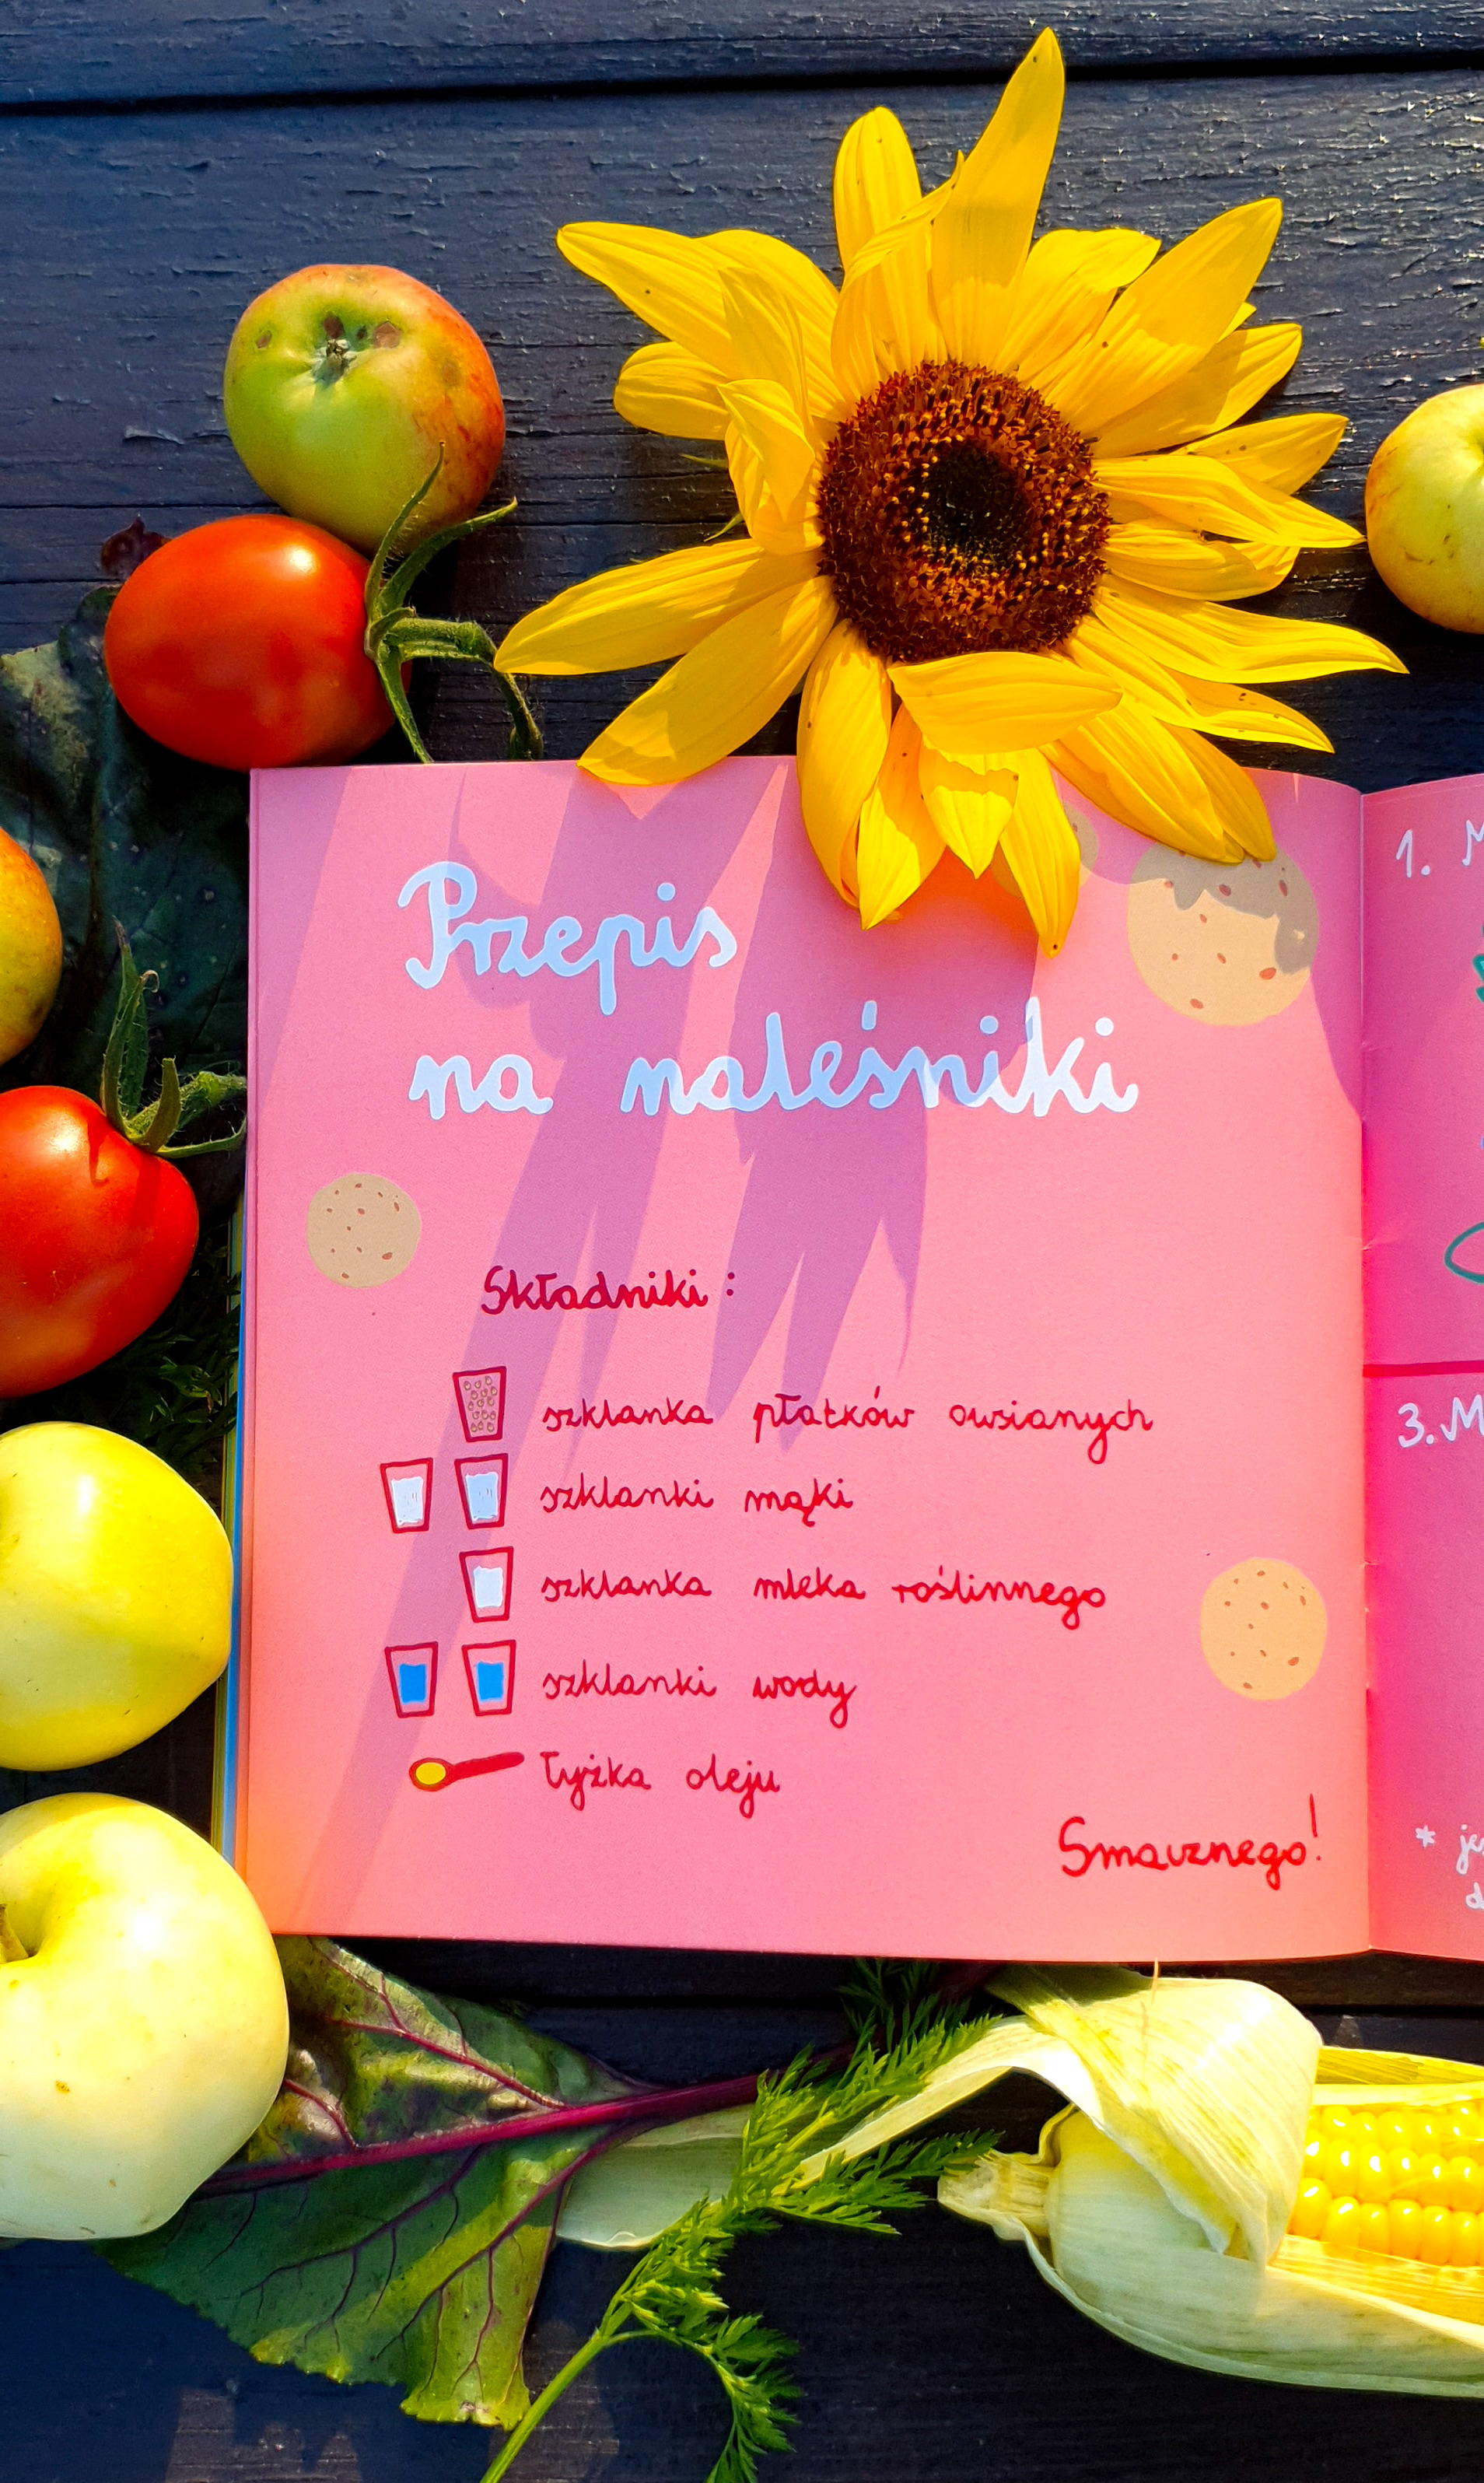 Przepis
na naleśniki
Składniki:
szklanka płatków owsianych
szklanki mąki
szklanka mleka roślinnego
szklanki wody
łyżka oleju
Smacznego!
1.
3.
*